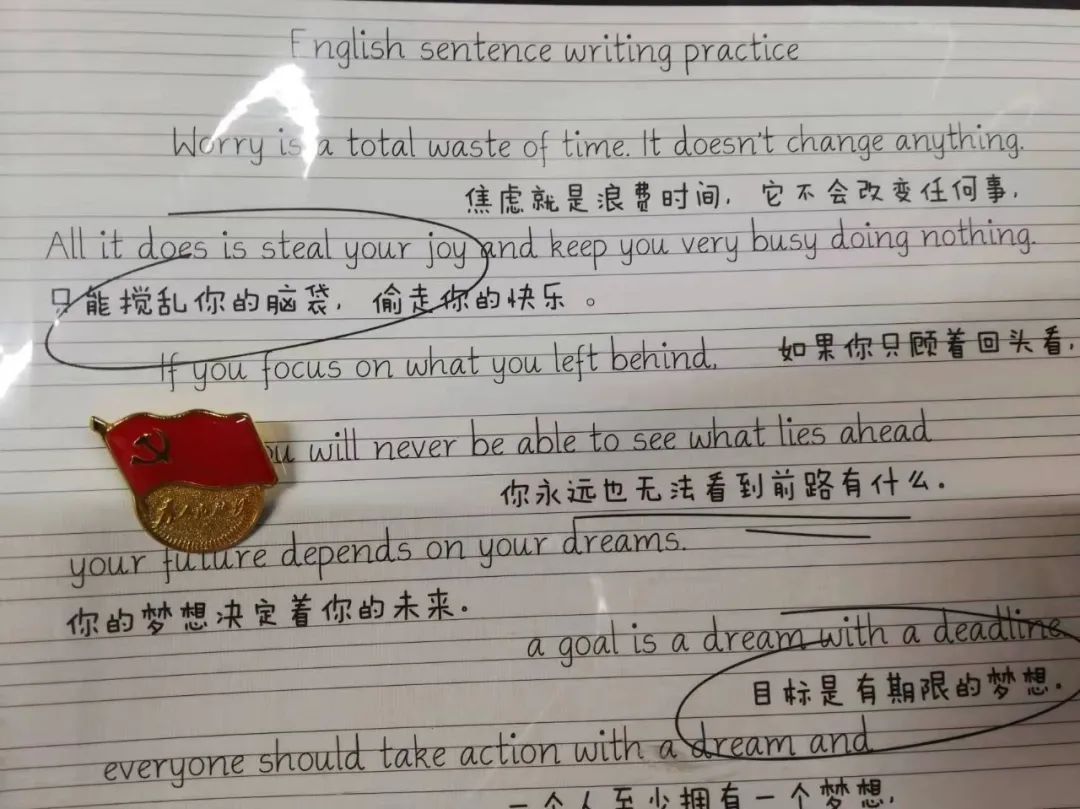 English sentence writing practice
Worry is a total waste of time. It doesn't change anything.
焦虑就是浪费时间，它不会改变任何事，
All it does is steal your joy and keep you very busy doing nothing.
只能搅乱你的脑袋，偷走你的快乐。
If you focus on what you left behind,
如果你只顾着回头看，
will never be able to see what lies ahead
你永远也无法看到前路有什么.
your future depends on your dreams.
你的梦想决定着你的未来.
a goal is a dream with a deadline
目标是有期限的梦想.
everyone should take action with a dream and
一个人至少拥有一个梦想,